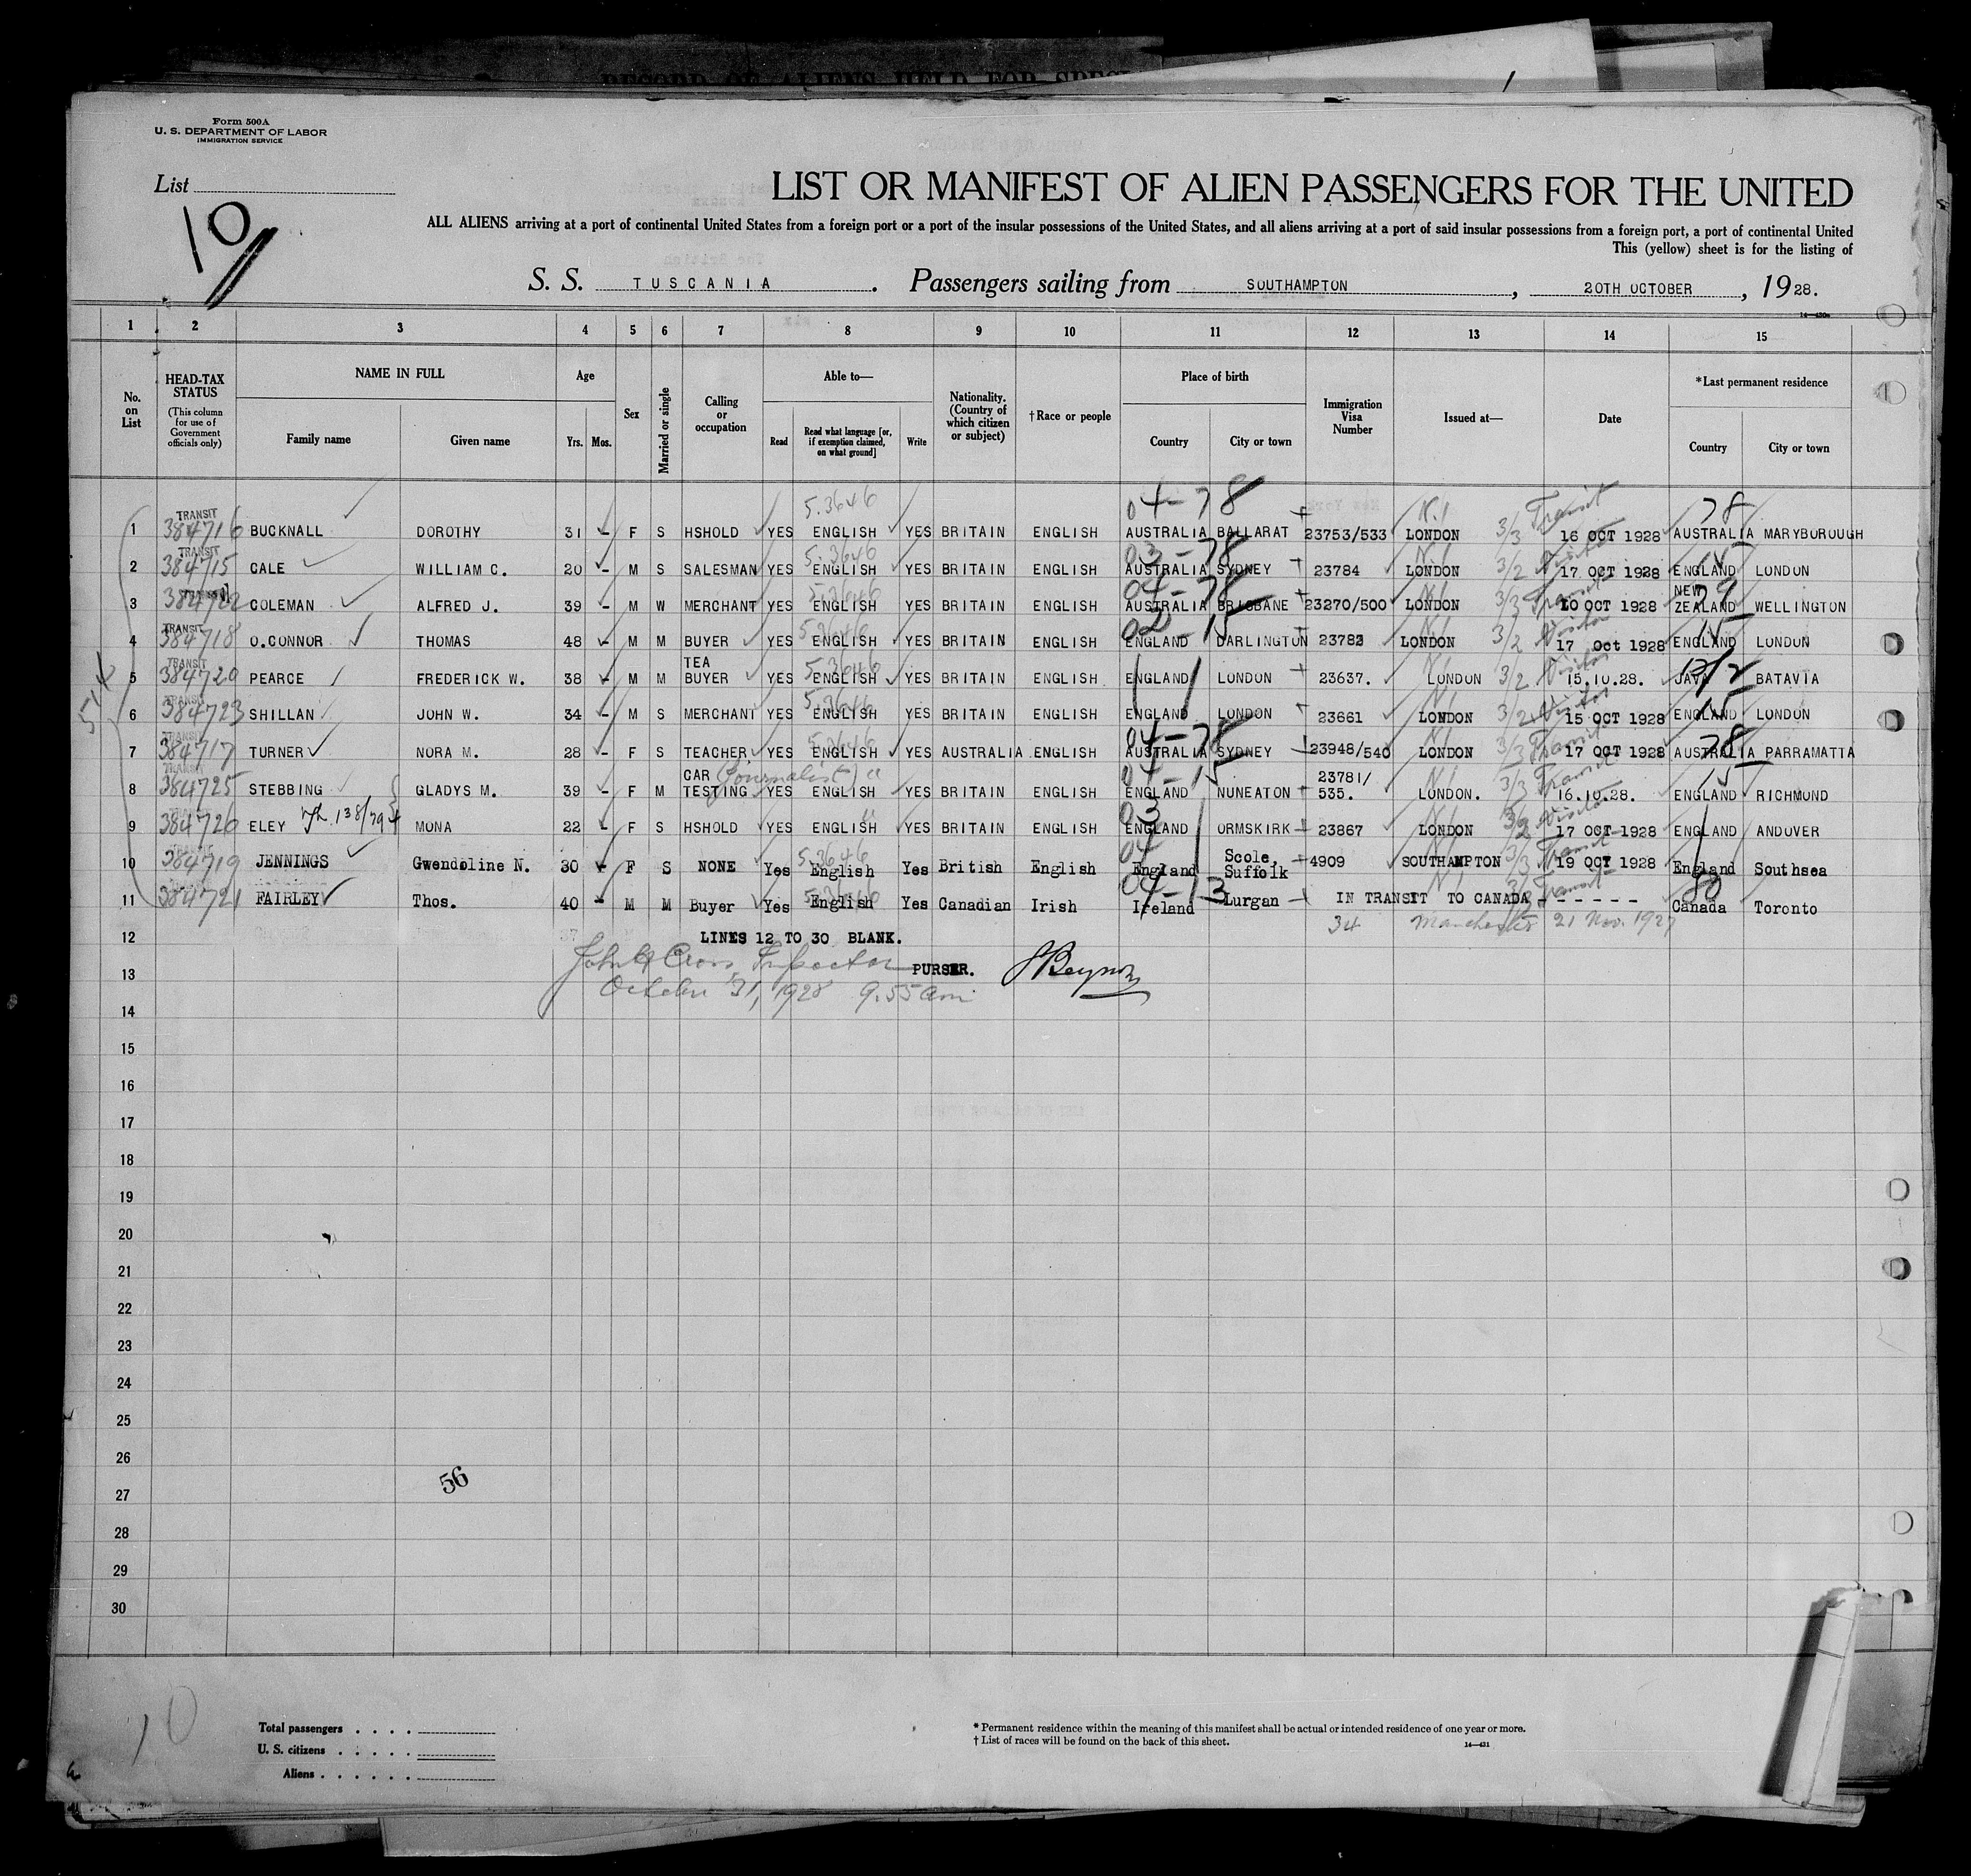 RECORD OF ALIENS HELD FOR SPECI
Form 500A
U. S. DEPARTMENT OF LABOR
IMMIGRATION SERVICE
List
10
LIST OR MANIFEST OF ALIEN PASSENGERS FOR THE UNITED
ALL ALIENS arriving at a port of continental United States from a foreign port or a port of the insular possessions of the United States, and all aliens arriving at a port of said insular possessions from a foreign port, a port of continental United
This (yellow) sheet is for the listing of
S. S. TUSCANIA. Passengers sailing from SOUTHAMPTON, 20TH OCTOBER, 1928.
1 2 3 4 5 6 7 8 9 10 11 12 13 14 15
No. on List
HEAD-TAX STATUS (This column for use of Government officials only)
NAME IN FULL Family name Given name
Age Yrs. Mos.
Sex
Married or single
Calling or occupation
Able to— Read Read what language [or, if exemption claimed, on what ground] Write
Nationality. (Country of which citizen or subject)
†Race or people
Place of birth Country City or town
Immigration Visa Number
Issued at—
Date
*Last permanent residence Country City or town
1 TRANSIT 384716 BUCKNALL DOROTHY 31 - F S HSHOLD YES 5.3646 ENGLISH YES BRITAIN ENGLISH 04-78 AUSTRALIA BALLARAT 23753/533 LONDON 3/3 Transit 16 OCT 1928 78 AUSTRALIA MARYBOROUGH
2 TRANSIT 384715 CALE WILLIAM C. 20 - M S SALESMAN YES 5.3646 ENGLISH YES BRITAIN ENGLISH 03-78 AUSTRALIA SYDNEY 23784 LONDON 3/2 Visitor 17 OCT 1928 15 ENGLAND LONDON
3 384722 COLEMAN ALFRED J. 39 - M W MERCHANT YES 5.3646 ENGLISH YES BRITAIN ENGLISH 04-78 AUSTRALIA BRISBANE 23270/500 LONDON 3/3 Transit 10 OCT 1928 79 NEW ZEALAND WELLINGTON
4 TRANSIT 384718 O.CONNOR THOMAS 48 - M M BUYER YES 5.3646 ENGLISH YES BRITAIN ENGLISH 02-15 ENGLAND DARLINGTON 23782 LONDON 3/2 Visitor 17 Oct 1928 15 ENGLAND LONDON
5 TRANSIT 384720 PEARCE FREDERICK W. 38 - M M TEA BUYER YES 5.3646 ENGLISH YES BRITAIN ENGLISH ENGLAND LONDON 23637. LONDON 3/2 Visitor 15.10.28. JAVA BATAVIA
6 TRANSIT 384723 SHILLAN JOHN W. 34 - M S MERCHANT YES 5.3646 ENGLISH YES BRITAIN ENGLISH ENGLAND LONDON 23661 LONDON 3/2 Visitor 15 OCT 1928 15 ENGLAND LONDON
7 TRANSIT 384717 TURNER NORA M. 28 - F S TEACHER YES 5.3646 ENGLISH YES AUSTRALIA ENGLISH 04-78 AUSTRALIA SYDNEY 23948/540 LONDON 3/3 Transit 17 OCT 1928 78 AUSTRALIA PARRAMATTA
8 TRANSIT 384725 STEBBING GLADYS M. 39 - F M CAR TESTING (Journalist) YES ENGLISH YES BRITAIN ENGLISH 04-15 ENGLAND NUNEATON 23781/535. LONDON. 3/3 Transit 16.10.28. 15 ENGLAND RICHMOND
9 384726 ELEY MONA 22 - F S HSHOLD YES ENGLISH YES BRITAIN ENGLISH 03 ENGLAND ORMSKIRK 23867 LONDON 3/2 Visitor 17 OCT 1928 ENGLAND ANDOVER
10 384719 JENNINGS Gwendoline N. 30 - F S NONE Yes 5.3646 English Yes British English 04 England Scole, Suffolk 4909 SOUTHAMPTON 3/3 Transit 19 OCT 1928 England Southsea
11 384721 FAIRLEY Thos. 40 - M M Buyer Yes 5.3646 English Yes Canadian Irish 04-13 Ireland Lurgan IN TRANSIT TO CANADA Transit - - - - - - 80 Canada Toronto
12 LINES 12 TO 30 BLANK. 34 Manchester 21 Nov. 1927
John G Cross, Inspector
13 PURSER.
October 31, 1928 9.55 am
14
15
16
17
18
19
20
21
22
23
24
25
26
56
27
28
29
30
10
Total passengers . . . .
U. S. citizens . . . . .
Aliens . . . . . .
* Permanent residence within the meaning of this manifest shall be actual or intended residence of one year or more.
† List of races will be found on the back of this sheet.
14—431